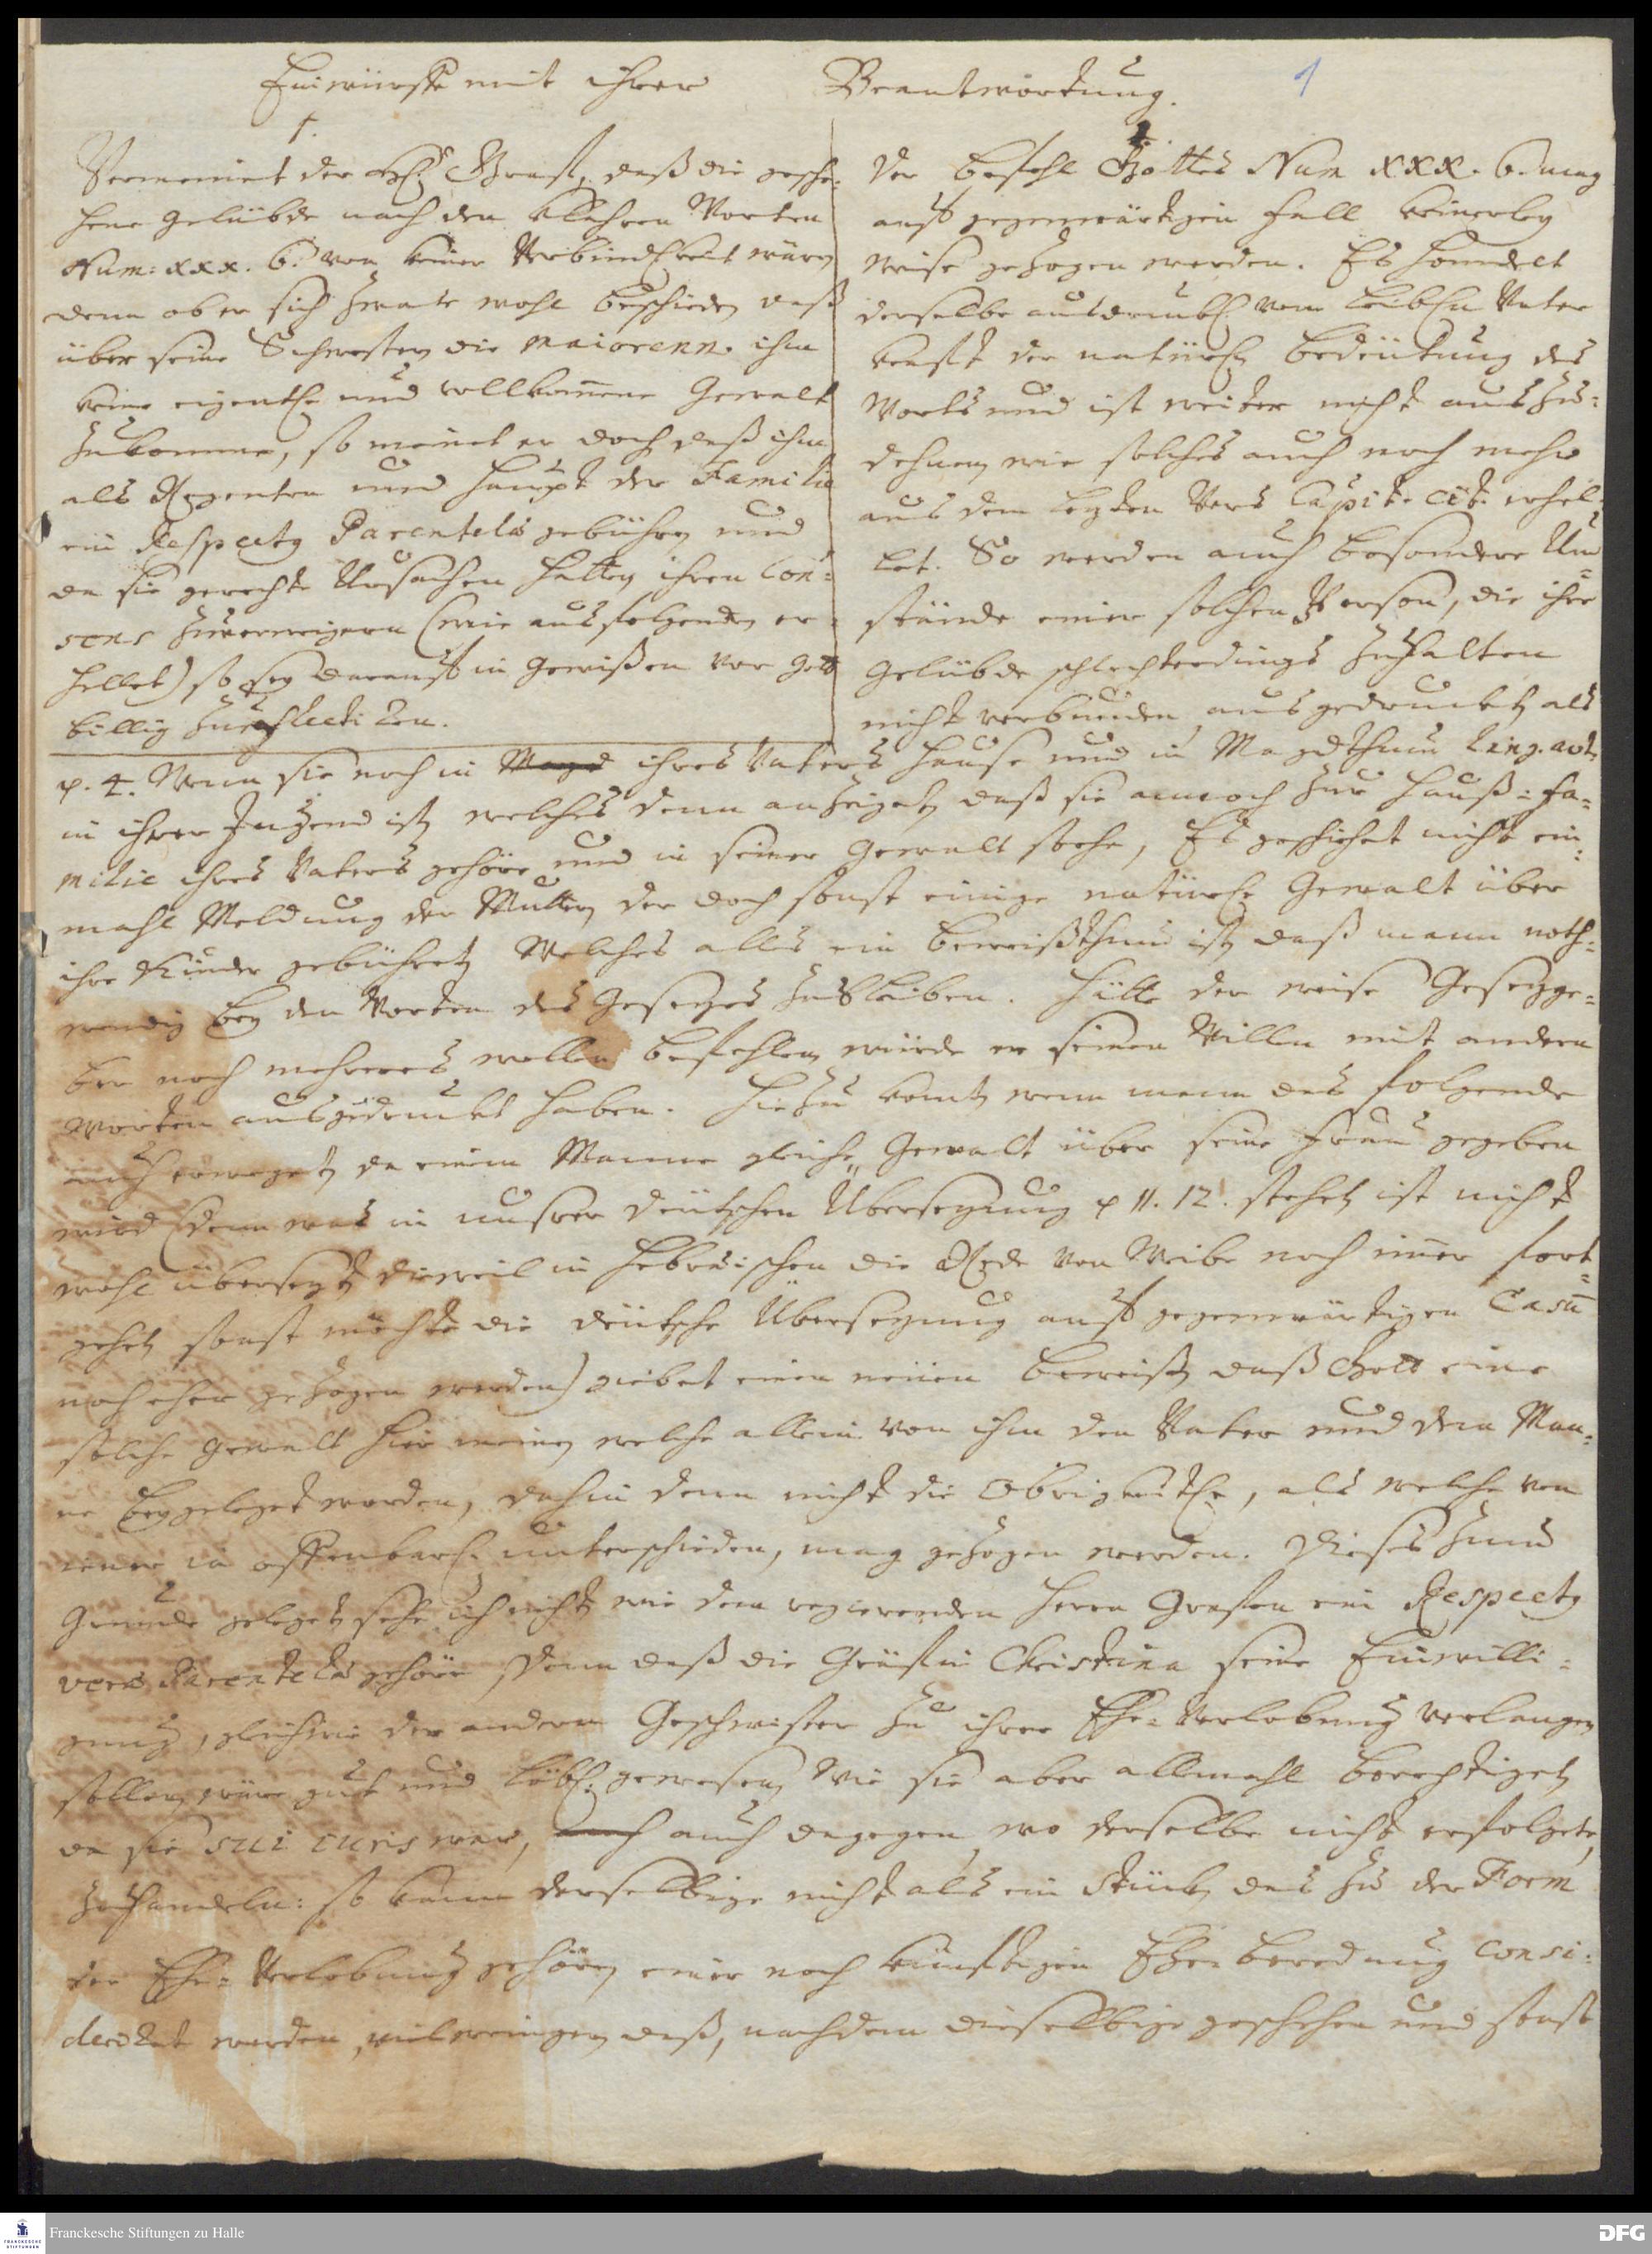 Einwürffe mit ihrer Beantwortung.
1
1.
Vermeinet der H. Graff, daß die gesche-
hene gelübde nach den klahren Worten
Num: XXX. 6. von keiner Verbindlkeit wären
denn ob er sich zwar wohl beschieden daß
über seine Schwester die maiorenn. ihm
keine eigentl. und vollkommene Gewalt
zukomme, so meinet er doch daß ihm
als Regenten und Haupt der Familie
ein Respectus Parentelae gebühre und
da sie gerechte Ursachen hätten ihren Con-
sens zuverweigern (wie aus folgenden er-
hellet) so sey darauff in gewißen vor Gott
billig zu reflectiren.
Der befehl Gottes Num XXX. 6. mag
auff gegenwärtigen fall keinerley
weise gezogen werden. Es handelt
derselbe ausdrückl. vom leibl. Vater
krafft der natürl. bedeütung des
Worts und ist weiter nicht auszu-
dehnen wie solches auch noch mehr
aus dem lezten Vers Capit. cit. erhel-
let. So werden auch besondere Um-
stände einer solchen Person, die ihr
gelübde schlechterdings zuhalten
nicht verbunden ausgedruckt als
v. 4. Wenn sie noch in Magd ihres Vaters Hause und in Magdthum
in ihrer Jugend ist welches denn anzeiget daß sie annoch zur Hauß-fa-
milie ihres Vaters gehöre und in seiner gewalt stehe, Es geschiehet nicht ein-
mahl Meldung der Mutter der doch sonst einige natürl. Gewalt über
ihre Kinder gebühret Welches alles ein beweißthum ist daß mann noth-
wendig bey den Worten des Gesezes zubleiben. Hätte der weise Gesezge-
ber noch mehreres wollen befehlen würde er seinen Willen mit andern
Worten ausgedruckt haben. Hiezu komt wenn mann das folgende
auch erweget da einem Manne gleiche Gewalt über seine Frau gegeben
wird (denn was in unsrer deütschen Übersezung v 11. 12. stehet ist nicht
wohl übersezt dieweil in Hebräischen die Rede von Weibe noch immer fort-
gehet sonst möchte die deütsche Übersezung auff gegenwärtigen Casum
noch eher gezogen werden) giebet einen neüen beweiß daß Gott eine
solche gewalt hier meine welche allein von ihm den Vater und dem Man-
ne beygeleget worden, dahin denn nicht die Obrigkeitl., als welche von
iener in offenbarl. unterschieden, mag gezogen werden. Dieses zum
Grunde geleget sehe ich nicht wie dem regierenden Herrn Grafen ein Respectus
verae Parentelae gehöre, Denn daß die Gräfin Christina seine Einwilli-
gung, gleichwie der andern Geschwister zu ihrer Ehe-Verlobung verlangen
sollen wäre gut und löbl. gewesen Wie sie aber allemahl berechtiget
da sie sui iuris war, auch dagegen, wo derselbe nicht erfolgete,
zuhandeln: so kann derselbige nicht als ein Stück das zu der Form
der Ehe-Verlobung gehöre, einer noch künfftigen Ehe beredung consi-
deriret werden, vielweniger daß, nachdem dieselbige geschehen und sonst
Franckesche Stiftungen zu Halle
DFG